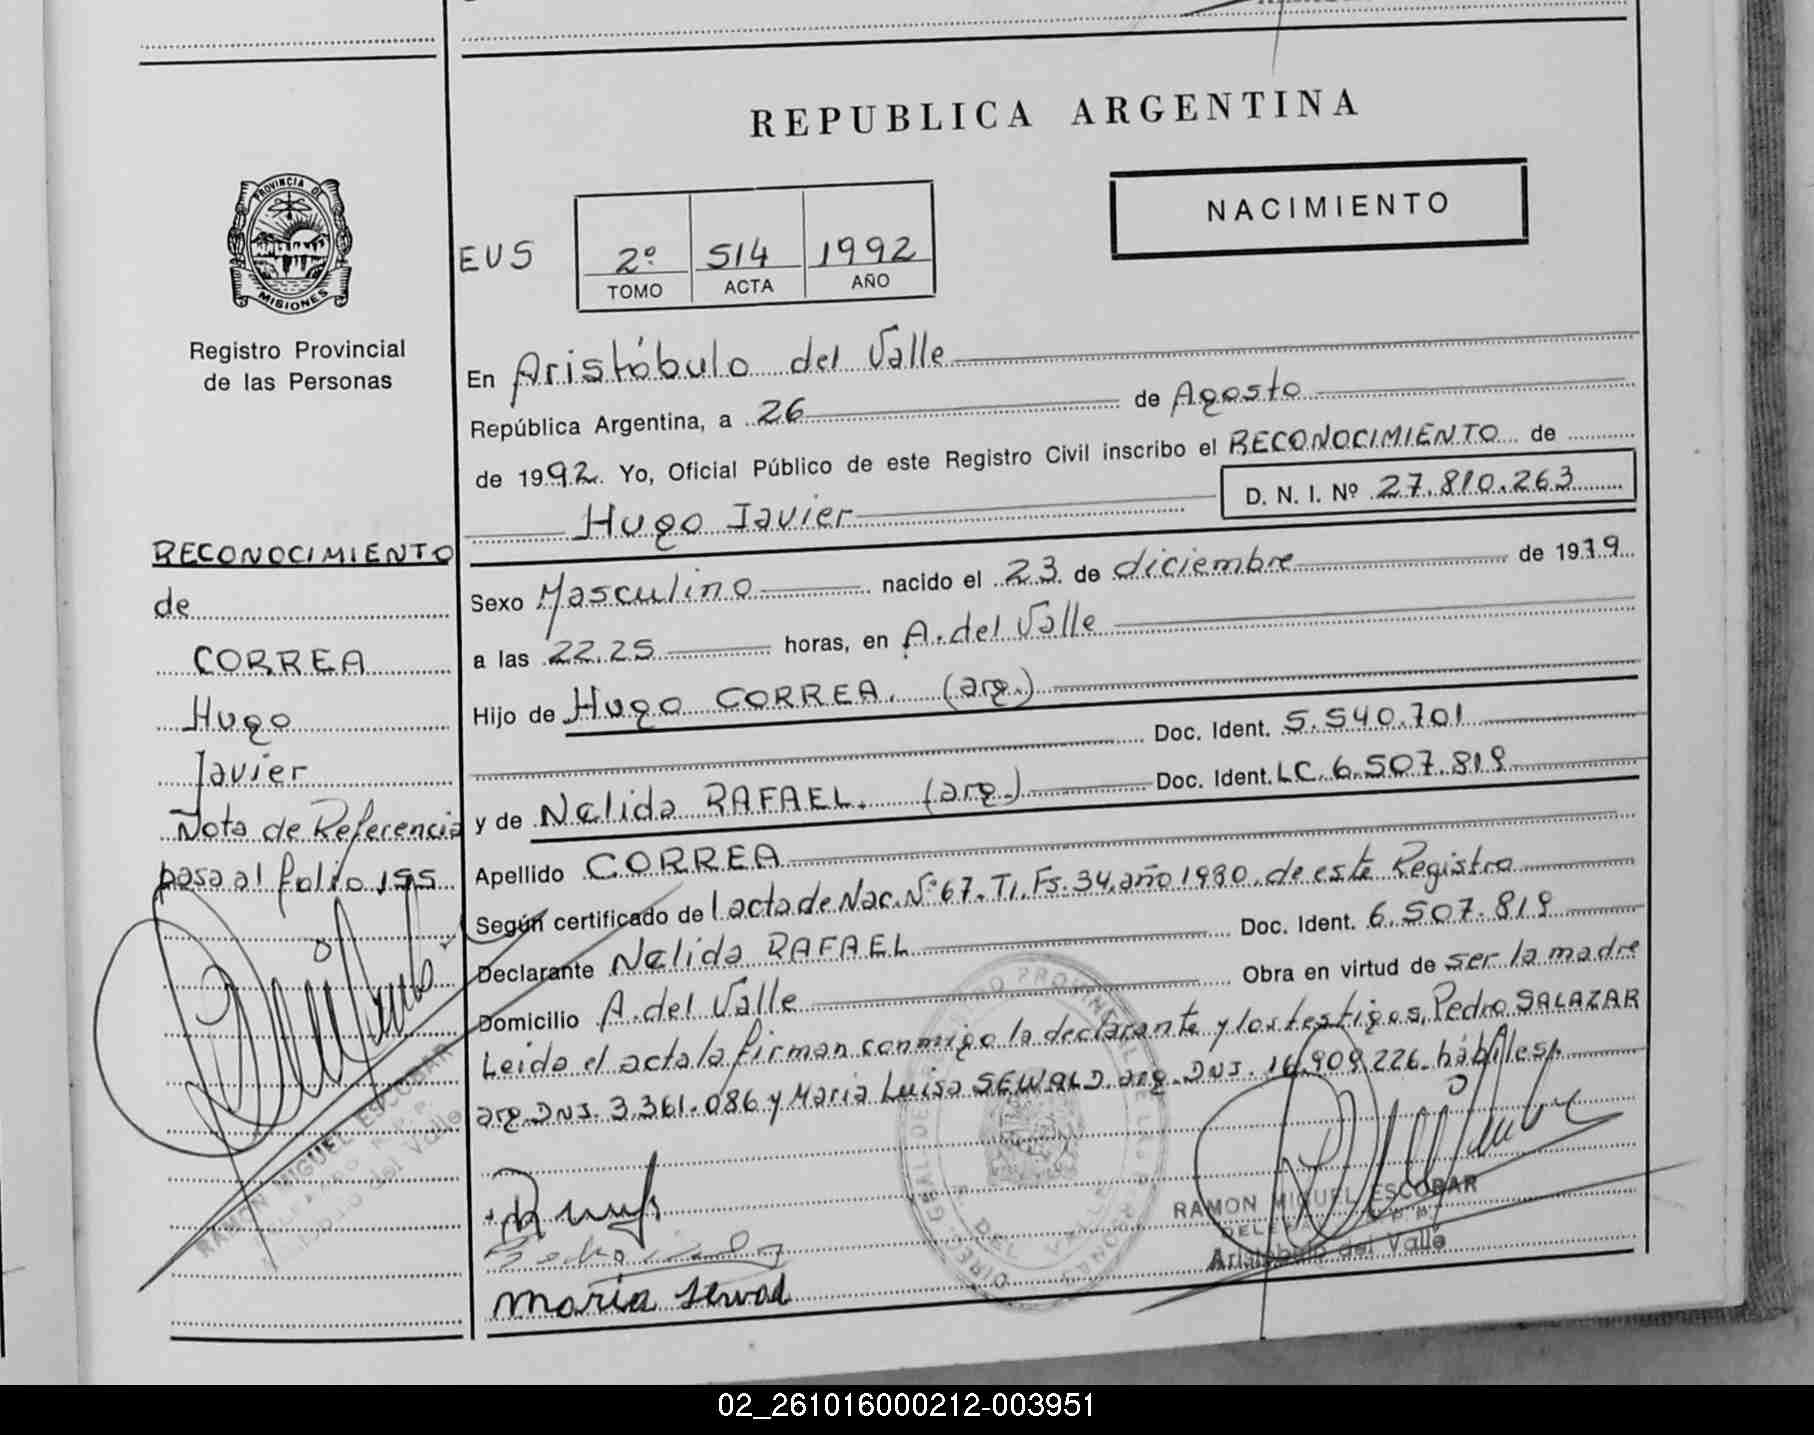 REPUBLICA ARGENTINA
NACIMIENTO
EUS
2º 514 1992
TOMO ACTA AÑO
PROVINCIA DE
MISIONES
Registro Provincial
de las Personas
RECONOCIMIENTO
de
CORREA
Hugo
Javier
Nota de Referencia
pasa al folio 155
RAMON MIGUEL ESCOBAR
En Aristóbulo del Valle
República Argentina, a 26 de Agosto
de 1992. Yo, Oficial Público de este Registro Civil inscribo el RECONOCIMIENTO de
Hugo Javier D. N. I. Nº 27.810.263
Sexo Masculino nacido el 23 de diciembre de 1979
a las 22.25 horas, en A. del Valle
Hijo de Hugo CORREA. (arg.)
Doc. Ident. 5.540.701
y de Nelida RAFAEL. (arg.) Doc. Ident. LC. 6.507.819
Apellido CORREA
Según certificado de l acta de Nac. Nº 67. T1. Fs. 34. año 1980. de este Registro
Declarante Nelida RAFAEL Doc. Ident. 6.507.819
Domicilio A. del Valle Obra en virtud de ser la madre
Leida el acta la firman conmigo la declarante y los testigos, Pedro SALAZAR
arg. DNI. 3.361.086 y Maria Luisa SEWALD. arg. DNI. 16.909.226. hábiles.
maria Sewal
RAMON MIGUEL ESCOBAR
Aristobulo del Valle
02_261016000212-003951